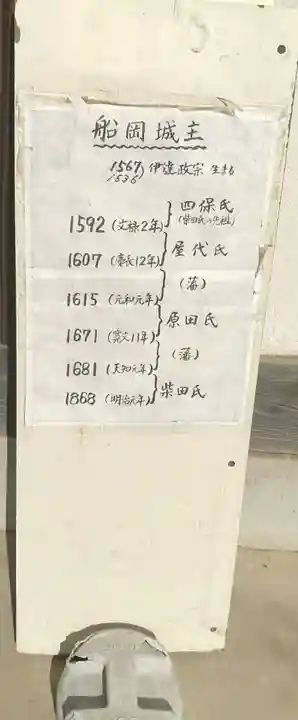 船岡城主
1567 伊達政宗 生まる
1536)
四保氏
(柴田氏の先祖)
1592 (文禄2年)
屋代氏
1607 (慶長12年)
(藩)
1615 (元和元年)
原田氏
1671 (寛文11年)
(藩)
1681 (天和元年)
柴田氏
1868 (明治元年)